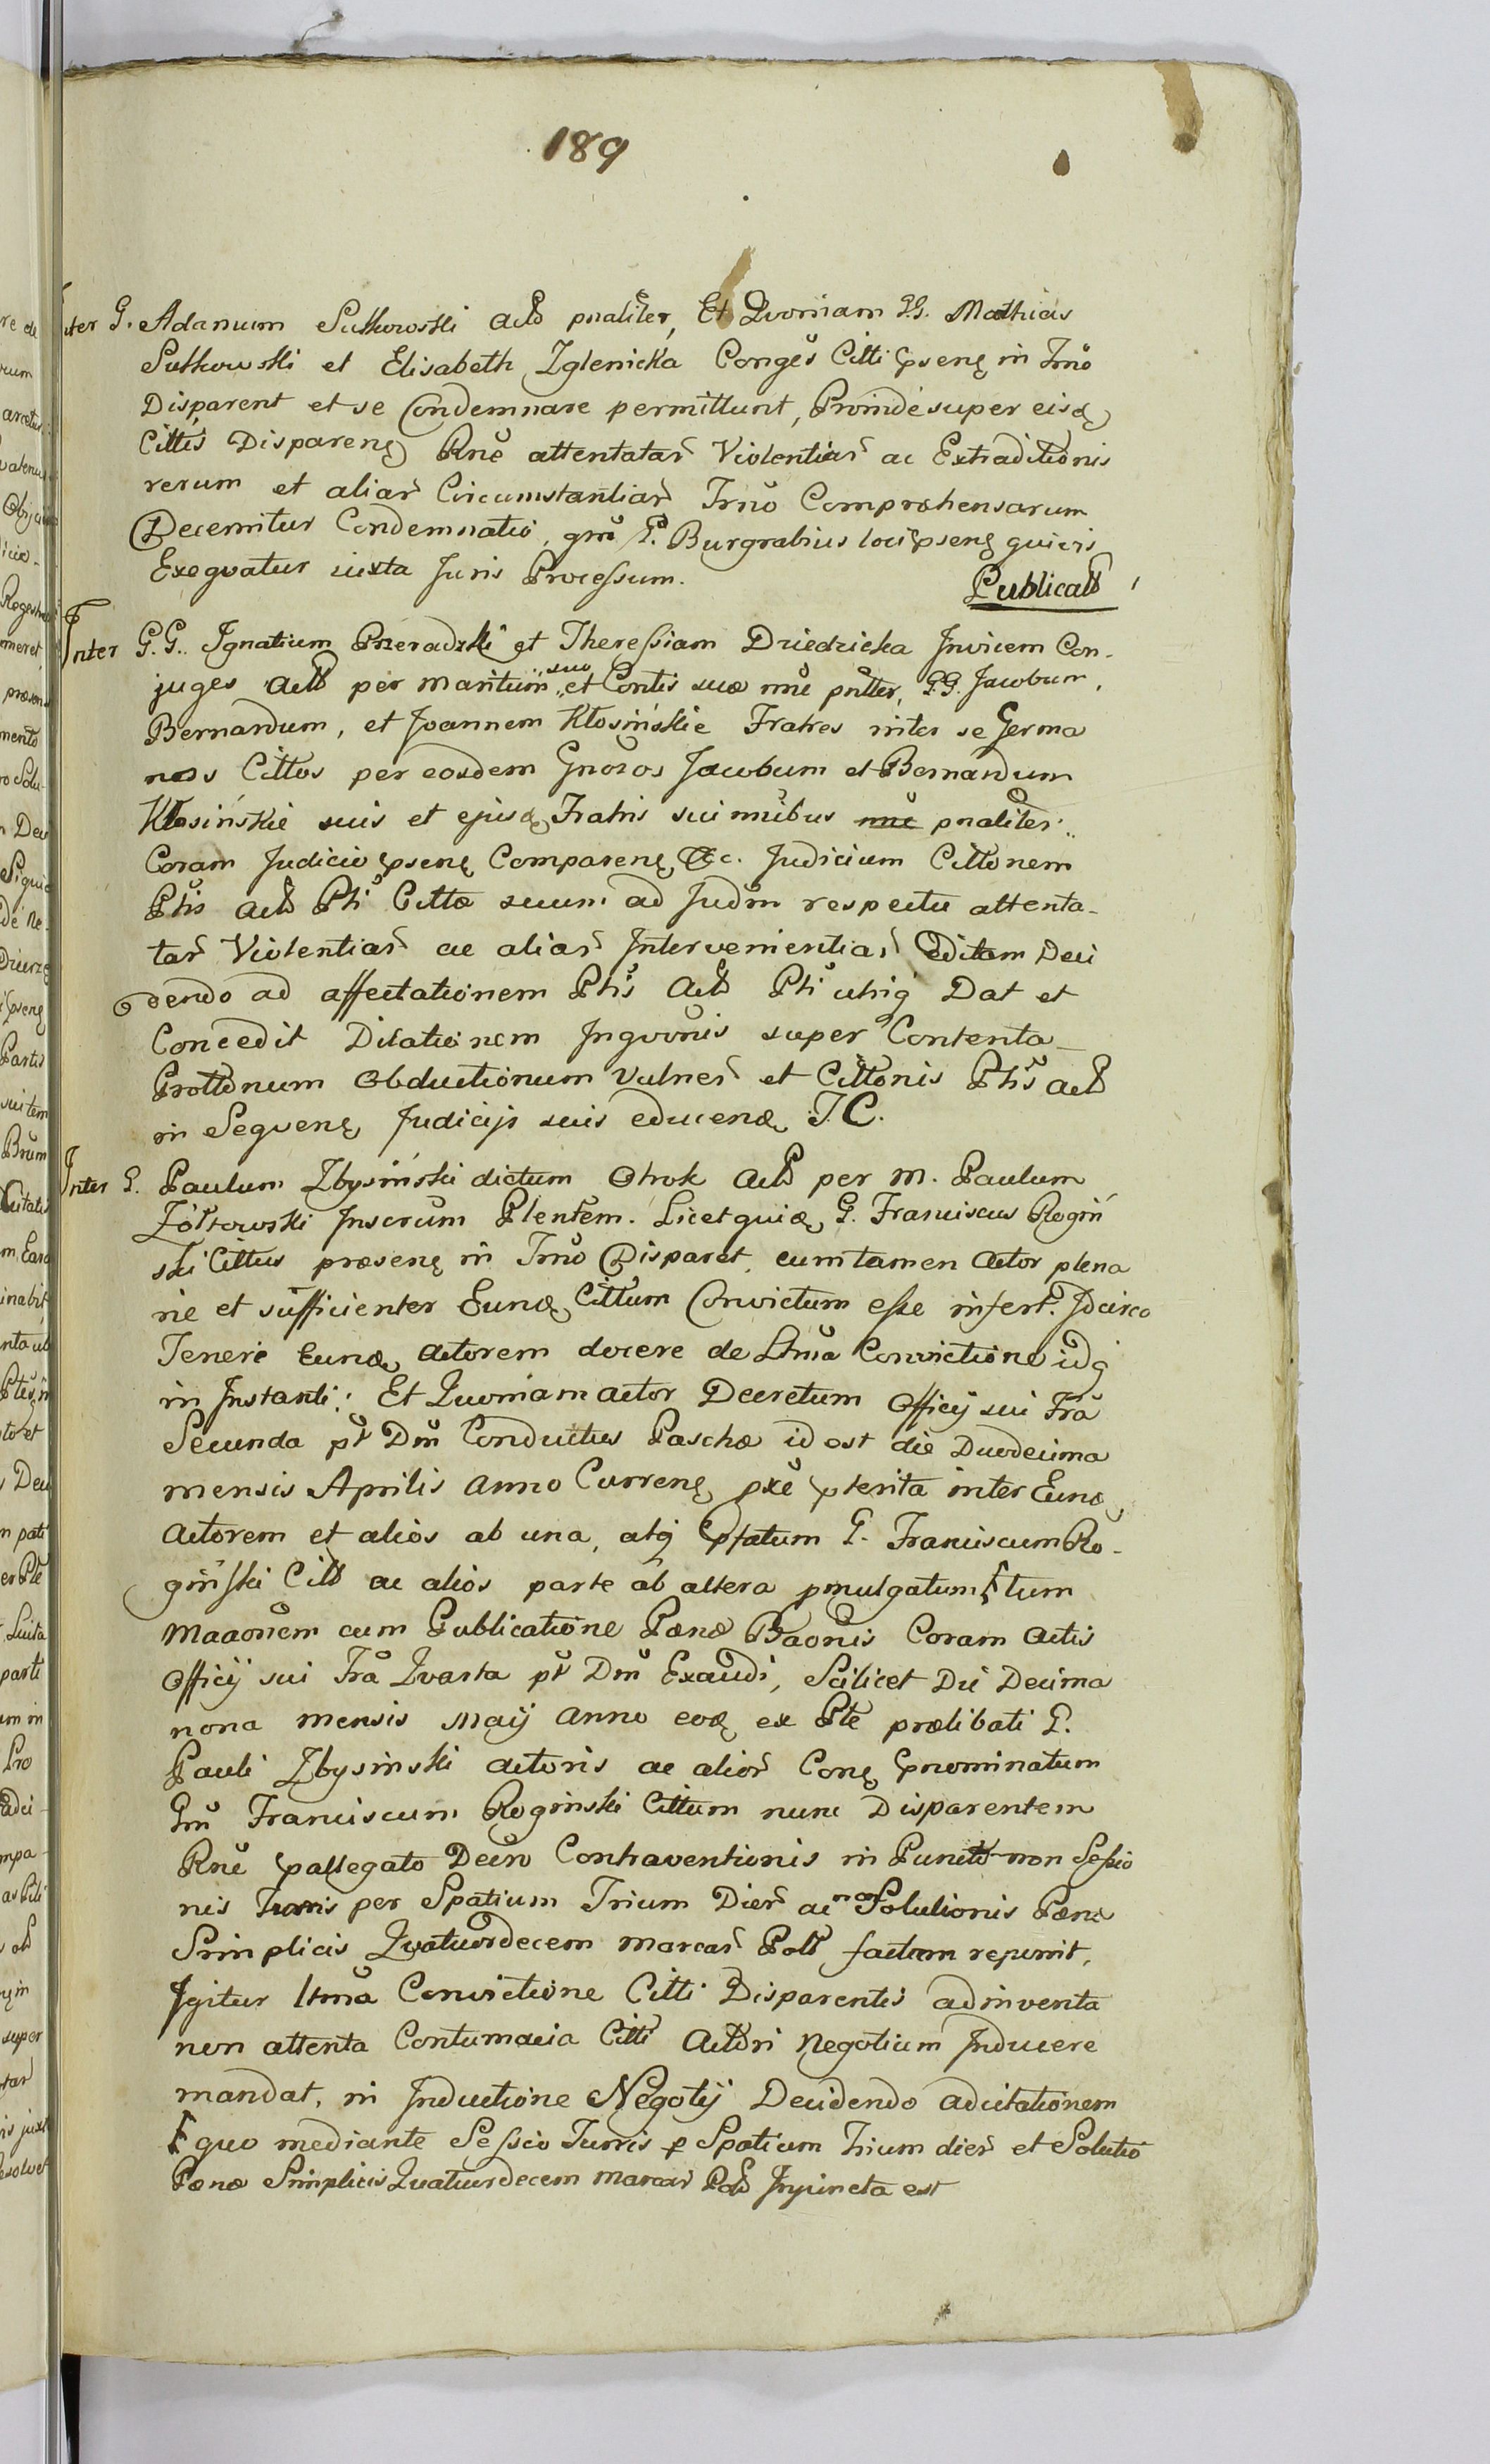 189
Inter G. Adamum Sutkowski actō pnaliter, Et Qvoniam GG. Mathias
Sutkowski et Elisabeth Zglenicka Conges Citti pseng in Trno
Disparent et se Condemnare permittunt, Proinde super eisq
Cittis Dispareng Rne attentatar Violentiar ac Extraditionis
rerum et aliar Circumstantiar Trno Compræhensarum
Decernitur Condemnatio, qm G. Burgrabius loci pseng quivis
Exeqvatur iuxta Juris Processum. Publicatō
Inter G.G. Ignatium Pneradzki et Theressiam Driedzicka Invicem Con-
juges actō per maritum suo et Contis suæ nne pntter, GG. Jacobum,
Bernardum, et Joannem Kłosińskie Fratres inter se Germa
nos Cittos per eosdem Gnosos Jacobum et Bernardum
Kłosińskie suis et ejusq Fratris sui nnibus nne pnaliter
Coram Judicio pseng Compareng &c. Judicium Cittonem
Ptis actō Pti Cittæ suum ad Judm respectu attenta-
tar Violentiar ac aliar Intervenientiar Editam Deci
dendo ad affectationem Ptis Actō Pti utriq Dat et
Concedit Dilationem Inqvonis super Contenta
Prottonum Obductionum Vulner et Cittonis Ptis actō
in Seqveng Judicijs suis educenq J.C.
Inter G. Paulum Zbysiński dictum Otrok Actō per M. Paulum
Zółtowski Juscrum Plentem. Licet quiq G. Franciscus Rogiń
ski Cittus præseng in Trno Disparet, cum tamen Actor plena
rie et sufficienter Eunq Cittum Convictum esse infert. Idcirco
Teneri Eunq Actorem docere de Ltma Convictione idq
in Instanti: Et Qvoniam actor Decretum Officij sui Fra
Secunda pt Dm Conductus Paschæ id est die Duodecima
mensis Aprilis anno Curreng pxe pterita inter Eunq
Actorem et alios ab una, atq pfatum G. Franciscum Ro-
giński Cittō ac alios parte ab altera pmulgatum tum
Maaonem cum Publicatione Pænæ Baonis Coram Actis
Officij sui Fra Qvarta pt Dm Exaudi, Scilicet Die Decima
nona mensis Maij Anno eoq ex Pte prælibati G.
Pauli Zbysinski actoris ac alior Cong pnominatum
Gm Franciscum Roginski Cittum nunc Disparentem
Rne pallegato Decro Contraventionis in Puncto non Sessio
nis Turris per Spatium Trium Dier ac non Solutionis Pænæ
Simplicis Qvatuordecem marcar Polō factam reperit,
Igitur ltma Convictione Citti Disparentis adinventa
non attenta Contumacia Citti Actori Negotium Inducere
mandat, in Inductione Negotij Decidendo ad citationem
quo mediante Sessio Turris p Spatium trium dier et Solutio
Pænæ Simplicis Qvatuordecem marcar Polō Injuncta est